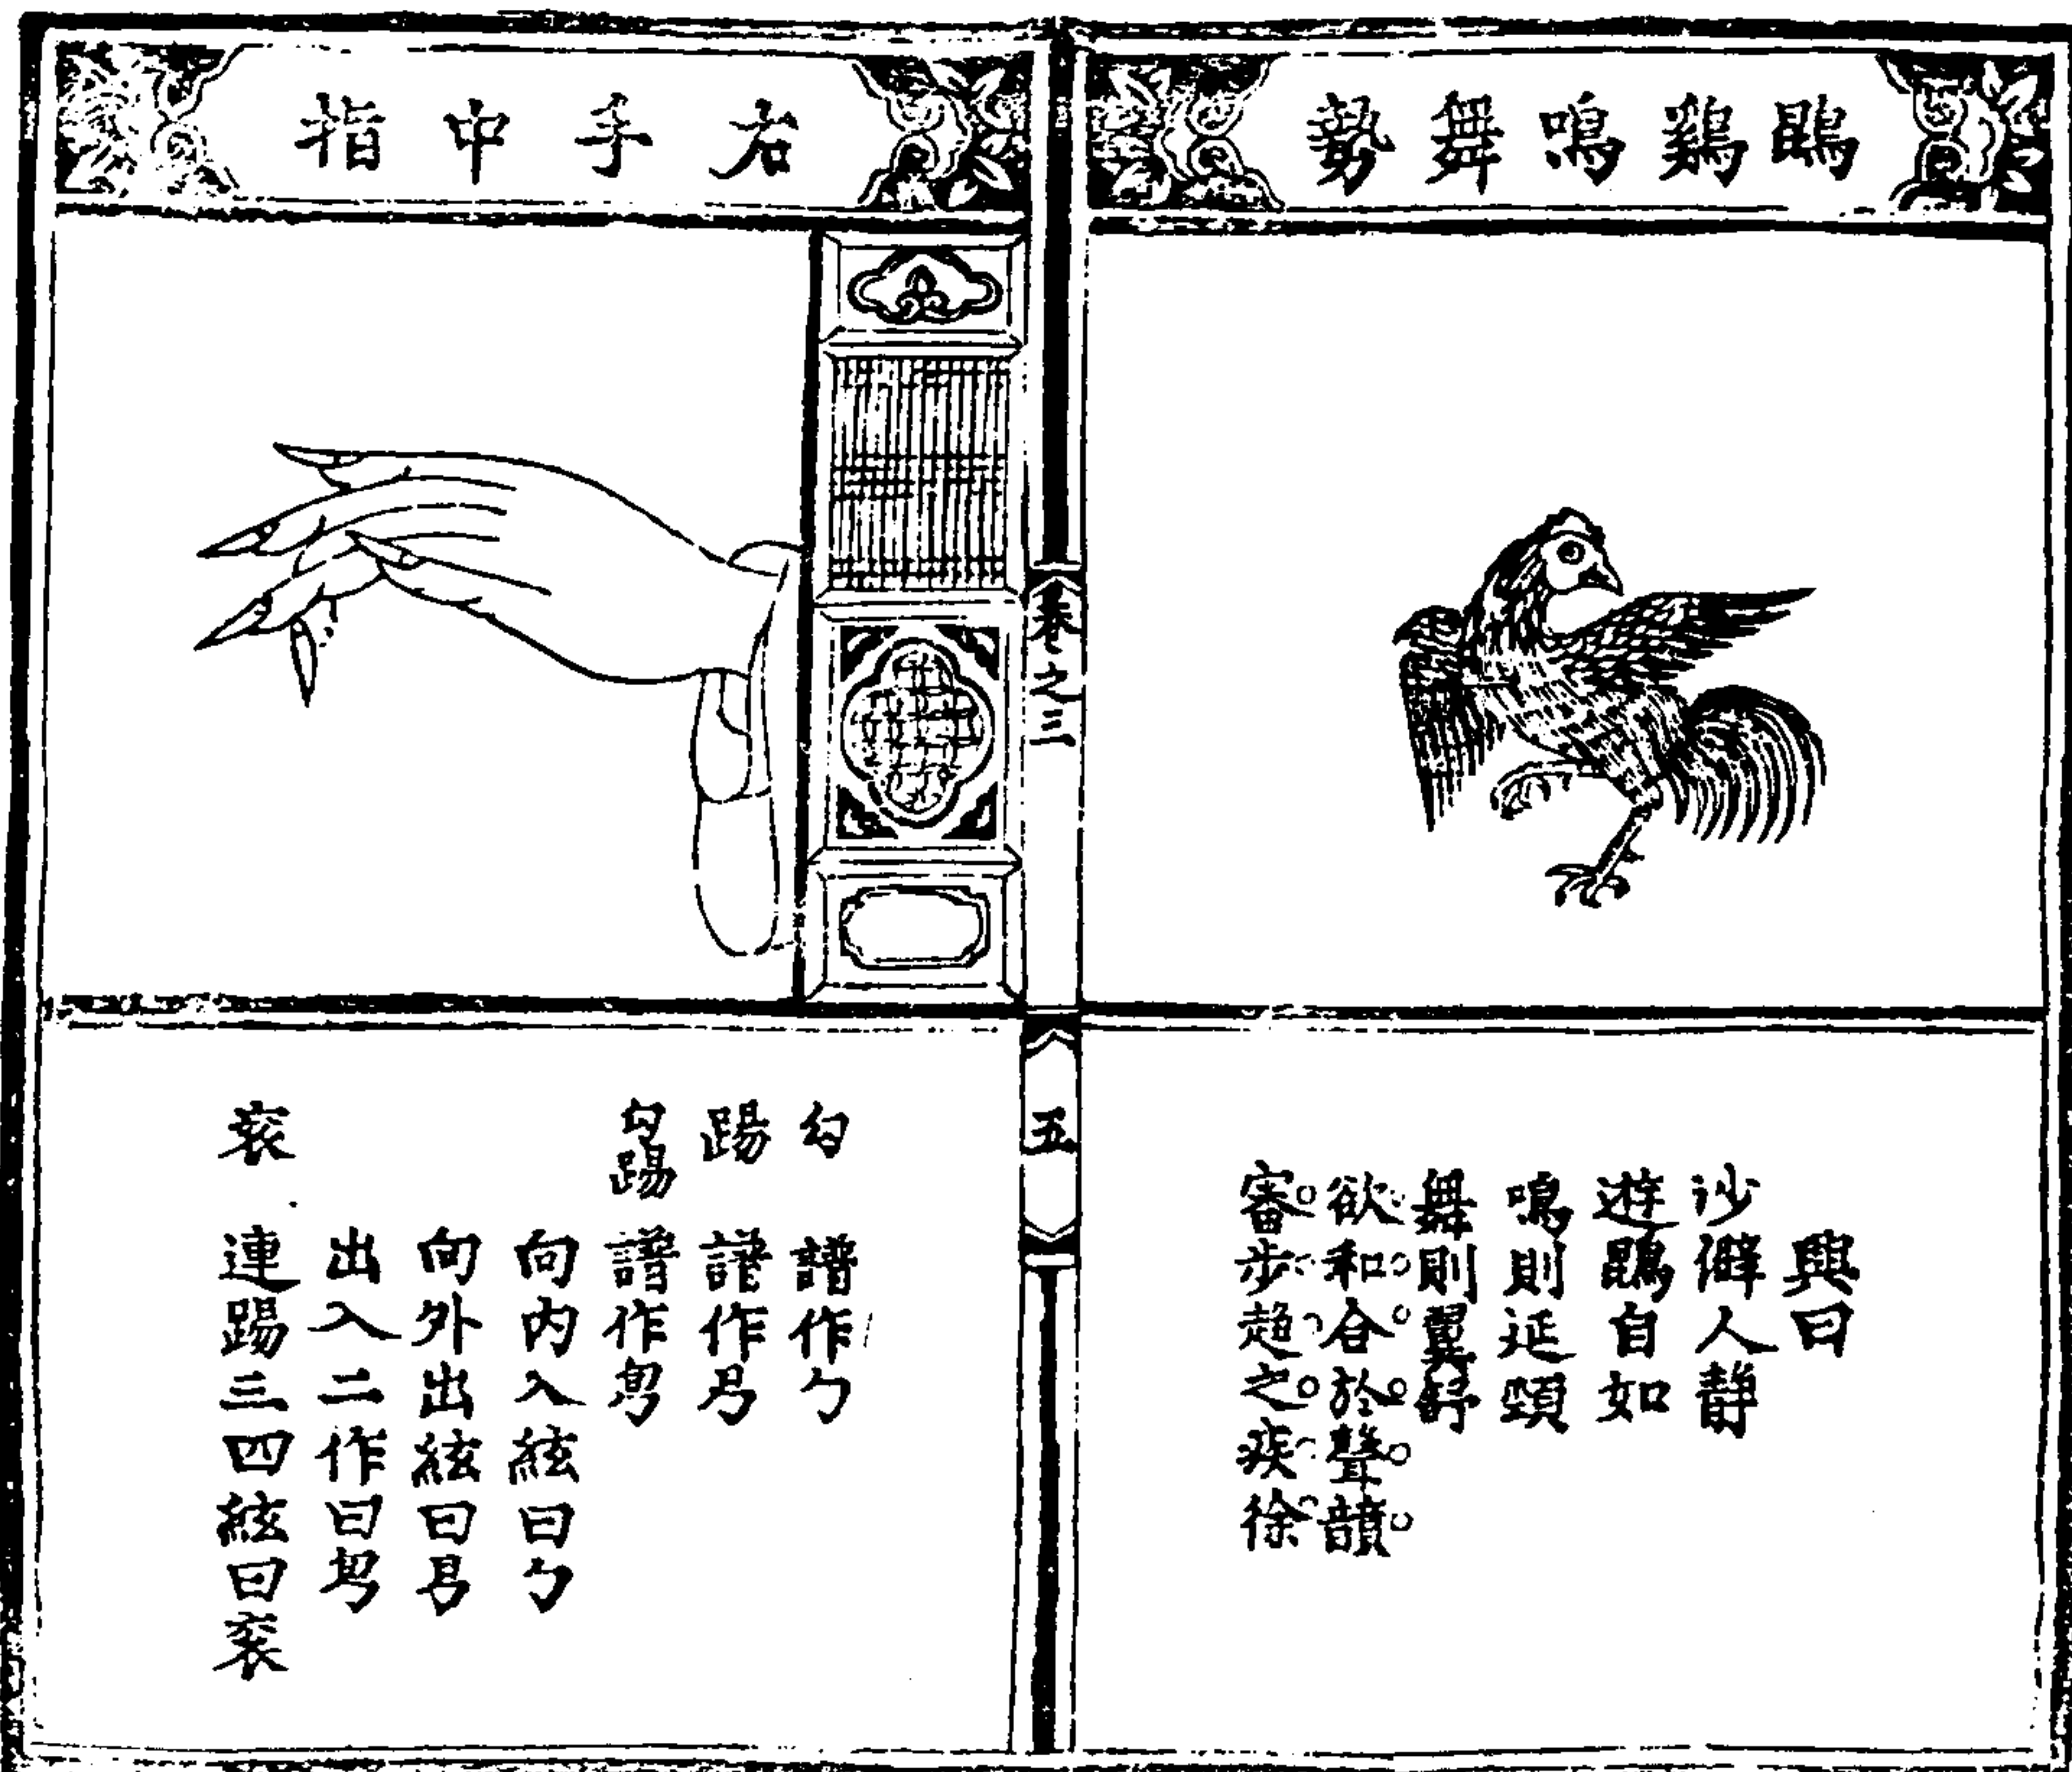 鵾鷄鳴舞勢
興曰
沙僻人静
遊鵾自如
鳴則延頸
舞則翼舒
欲和合於聲韻
審步趨之疾徐
卷之三
五
右手中指
勾 譜作勹
踢 譜作
勾踢 譜作
向内入絃曰勹
向外出絃曰
出入二作曰
衮 連踢三四絃曰衮